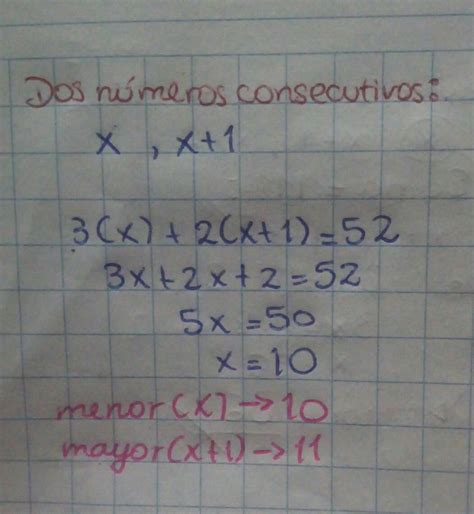 Dos números consecutivos:
x , x+1
3(x) + 2(x+1) = 52
3x + 2x + 2 = 52
5x = 50
x = 10
menor (x) → 10
mayor (x+1) → 11